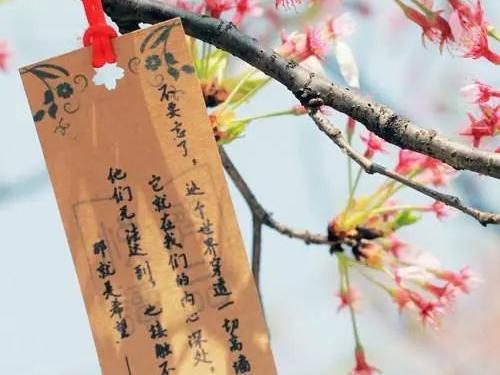 不要忘了，这个世界穿透一切高墙
它就在我们的内心深处，
他们无法达到，也接触不
那就是希望。—